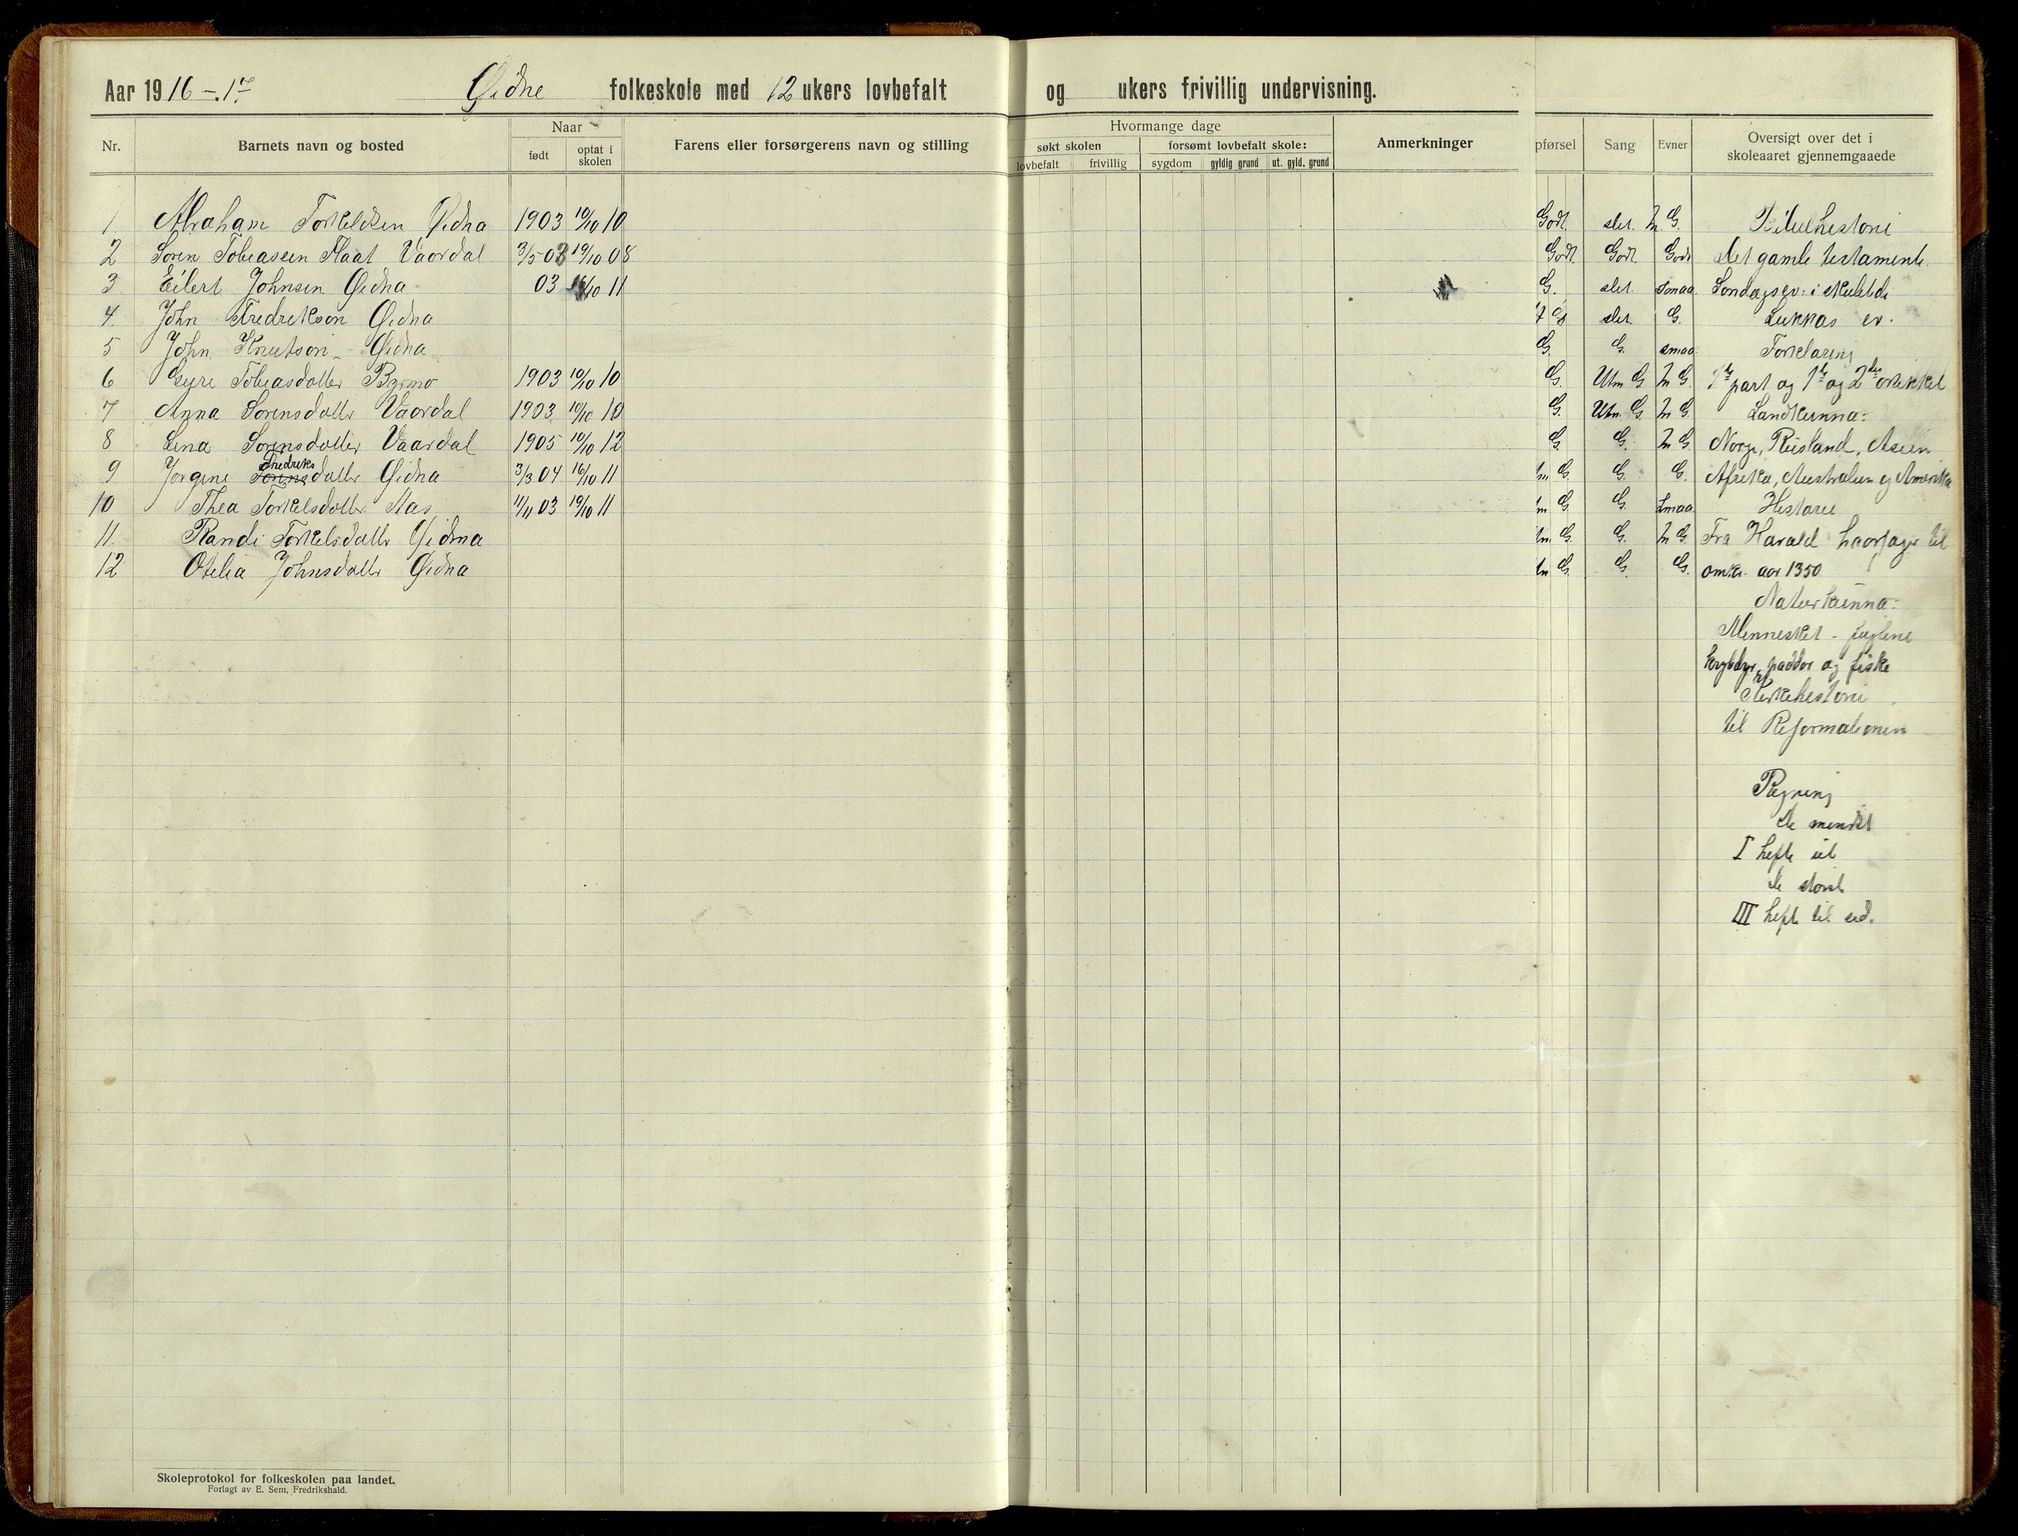 Aar 1916-17. Øidne folkeskole med 12 ukers lovbefalt og ukers frivillig undervisning.
Nr. Barnets navn og bosted Naar født optat i skolen Farens eller forsørgerens navn og stilling Hvormange dage søkt skolen lovbefalt frivillig forsømt lovbefalt skole: sygdom gyldig grund ut. gyld. grund Anmerkninger pførsel Sang Evner Oversigt over det i skoleaaret gjennemgaaede
1. Abraham Torkeldsen Øidna 1903 10/10 10 Godt. slet. M G. Bibelhistorie
2 Soren Tobiassen Flaat Vaordal 3/5 03 10/10 08 Godt. Godt. Godt Det gamle testamente
3 Eilert Johnsen Øidna 03 16/10 11 G. slet. smaa Søndagsev. i
4. John Fredrikson Øidna slet. G. Lukkas ev.
5 John Knutson - Øidna G. G. smaa Forklaring
6 Gyre Tobiasdatter Byrmo 1903 10/10 10 G. Utm G M G. 1ste part og 1ste og 2den artikkel
7 Anna Sorensdatter Vaordal 1903 10/10 10 G. Utm. G M G. Landkunna:
8 Lina Sorensdatter Vaardal 1905 10/10 12 G. G. M G. Norge, Rusland, Asien
9 Jorgine Sorens Fredriksdatter Øidna 3/3 04 16/10 11 m G. G. G. Afrika, Australien og Amerika
10 Thea Torkelsdatter Aas 11/11 03 10/10 11 m G. G. Smaa Historie
11. Randi Torkelsdatter Øidna m. G. G. M G. Fra Harald haarfagre til
12 Otelia Johnsdatter Øidna m G. G. G. omkr. aar 1350
Naturkunna:
Mennesket - fuglene
krybdyr, padder og fiske
Kirkehistorie
til Reformationen
Regning
de mindst
I hefte ut
de storste
III hefte til ud.
Skoleprotokol for folkeskolen paa landet.
Forlagt av E. Sem, Fredrikshald.